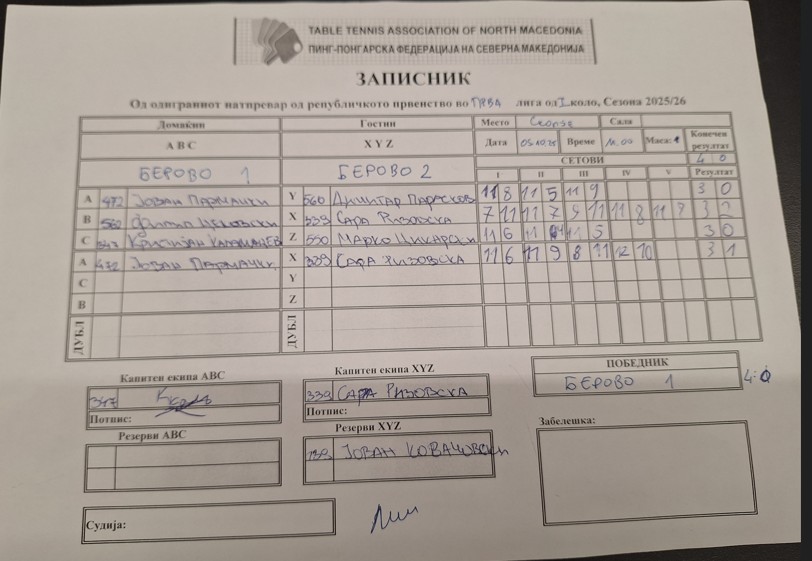 TABLE TENNIS ASSOCIATION OF NORTH MACEDONIA
ПИНГ-ПОНГАРСКА ФЕДЕРАЦИЈА НА СЕВЕРНА МАКЕДОНИЈА
ЗАПИСНИК
Од одиграниот натпревар од републичкото првенство во ПРВА лига од I коло, Сезона 2025/26
Домаќин Гости Место Сала
A B C X Y Z Дата Време Маса: 1 Конечен резултат
БЕРОВО 1 БЕРОВО 2 СЕТОВИ 4 0
I II III IV V Резултат
A 472 Јован Пармачки Y 560 Димитар 11 8 11 5 11 9 3 0
B X 339 Сара Ризовска 7 11 11 7 9 11 11 8 11 3 2
C Кристијан Z 550 Марко 11 6 11 11 5 3 0
A 472 Јован Пармачки X 339 Сара Ризовска 11 6 11 9 8 11 12 10 3 1
C Y
B Z
ДУБЛ ДУБЛ
Капитен екипа ABC Капитен екипа XYZ ПОБЕДНИК
347 339 САРА РИЗОВСКА БЕРОВО 1 4:0
Потпис: Потпис:
Резерви ABC Резерви XYZ Забелешка:
ЈОВАН КОВАЧОВСКИ
Судија: